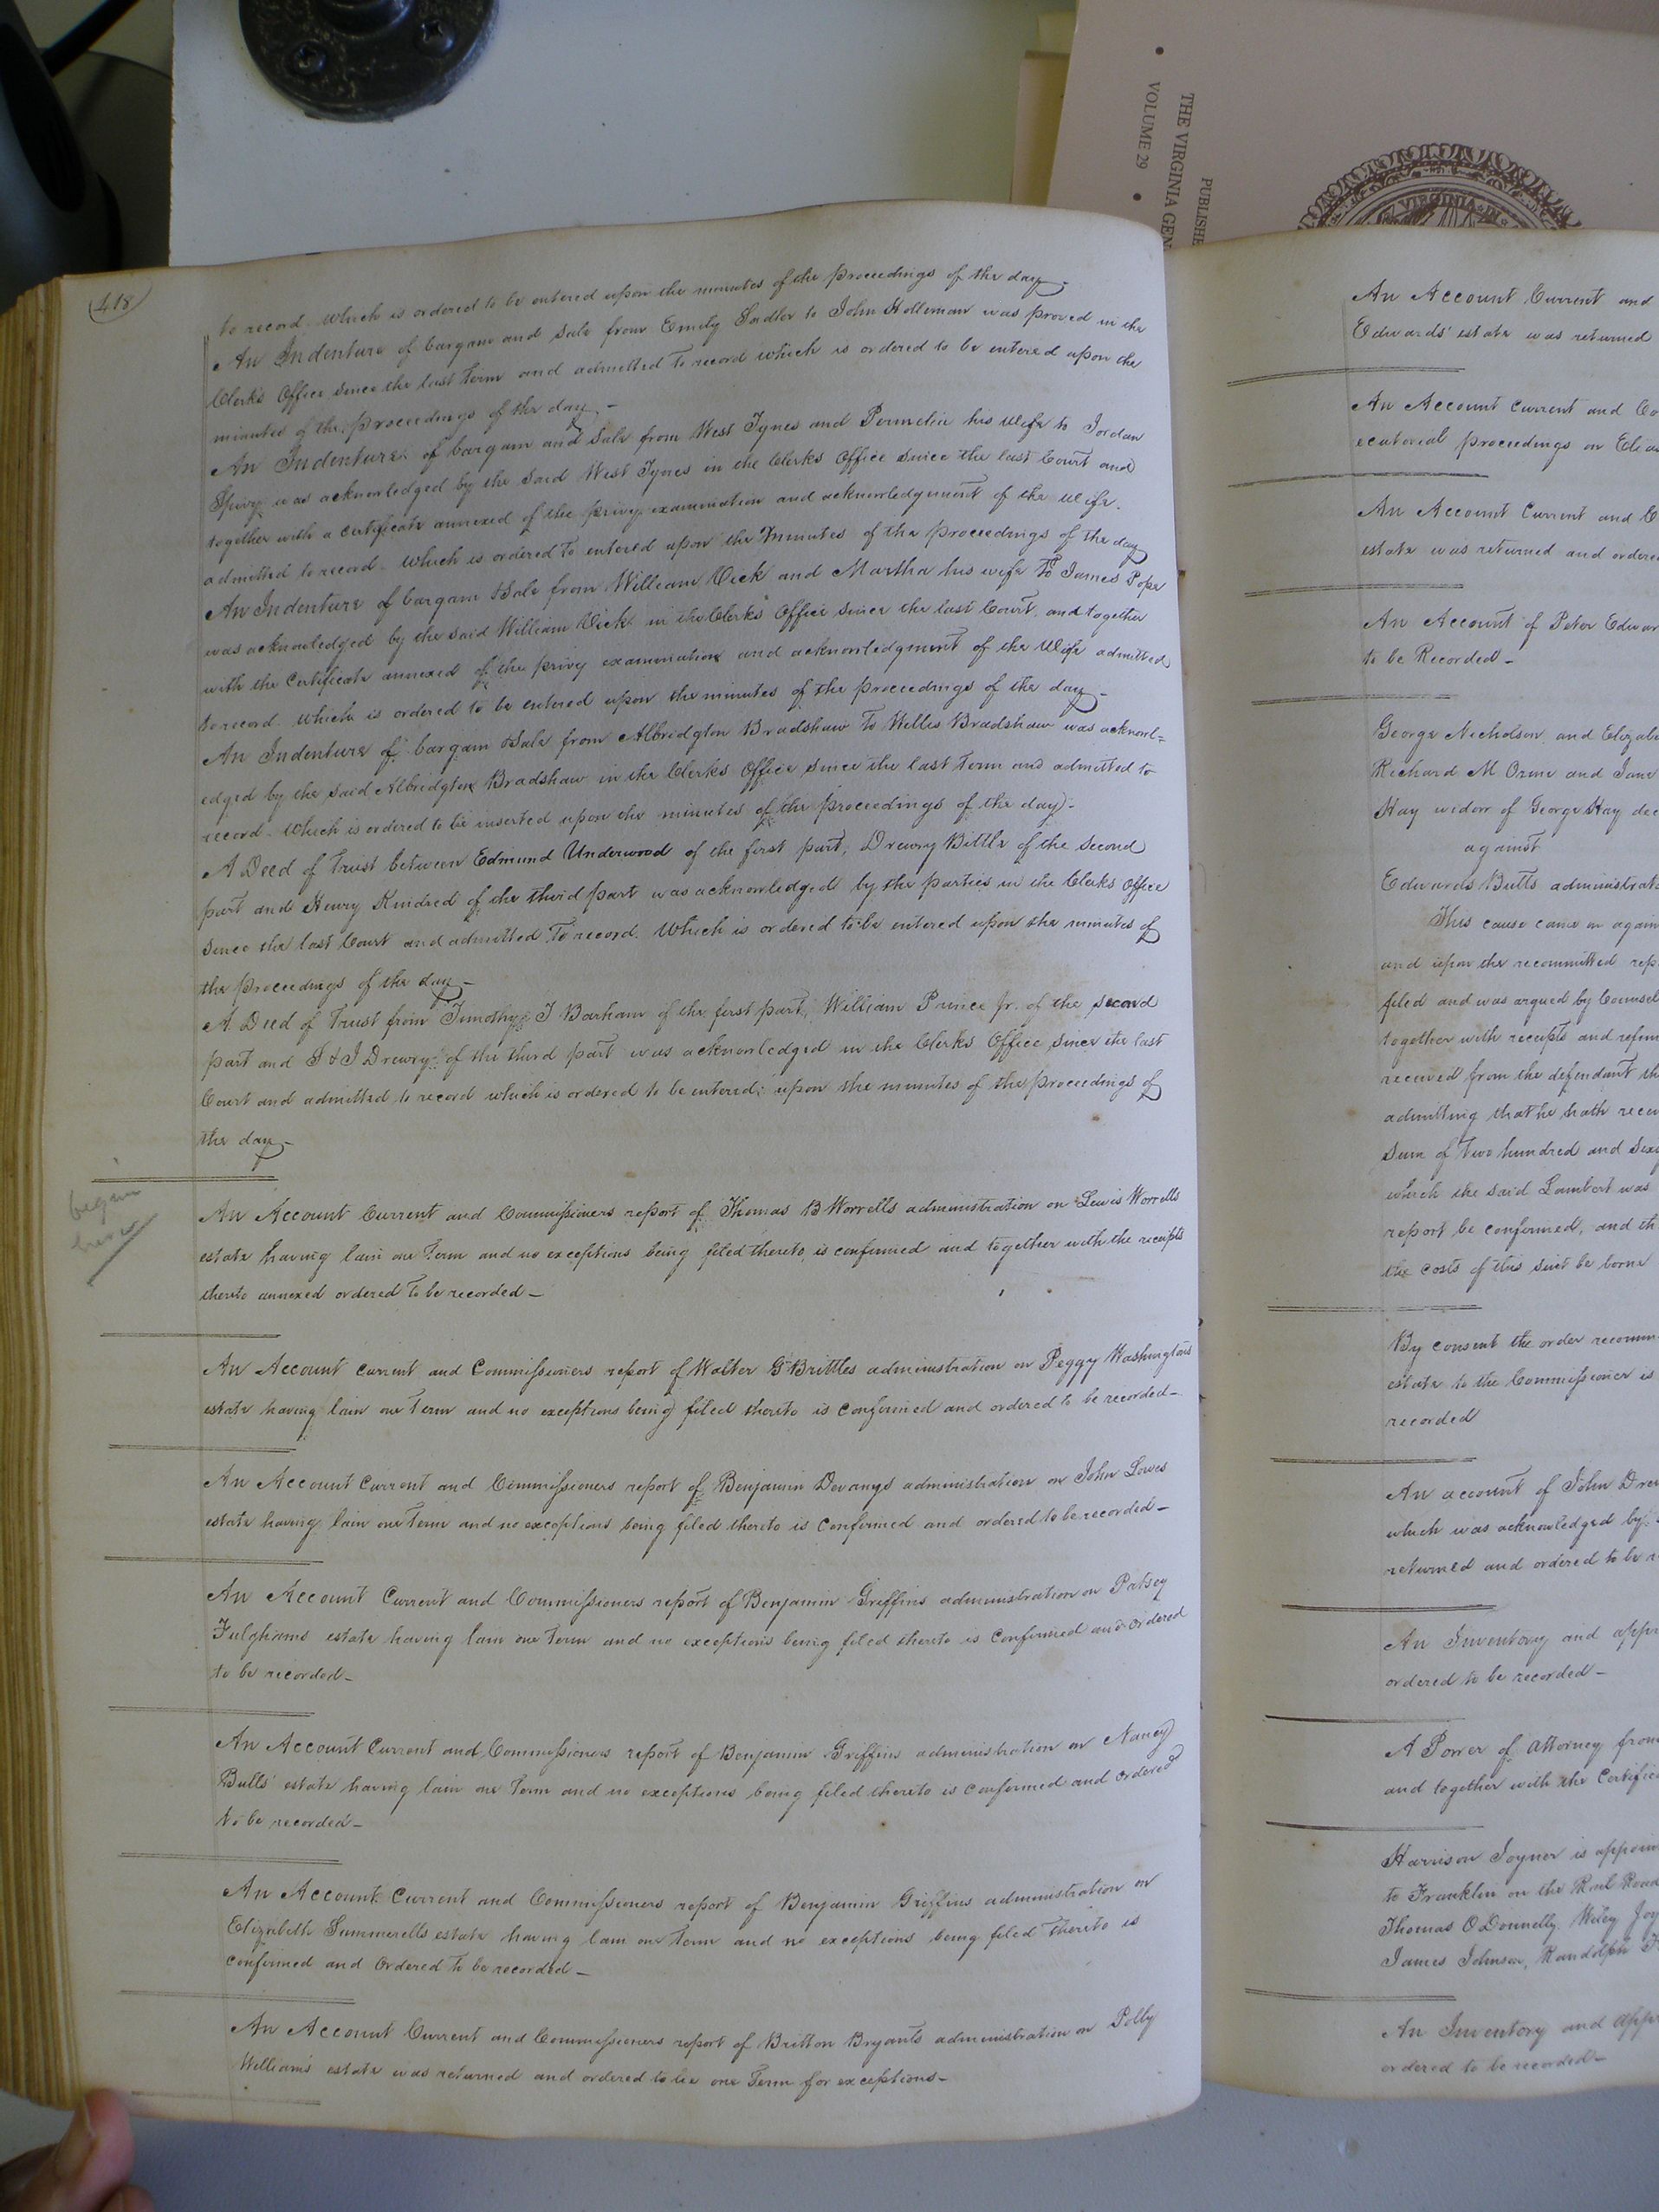 VOLUME 29
THE VIRGINIA GEN
PUBLISHE
VIRGINIA
418
to record. Which is ordered to be entered upon the minutes of the proceedings of the day.
An Indenture of bargain and Sale from Emily Sadler to John Holleman was proved in the
Clerks Office since the last Term and admitted to record which is ordered to be entered upon the
minutes of the proceedings of the day.—
An Indenture of bargain and Sale from West Tynes and Permelia his wife to Jordan
Spivy was acknowledged by the said West Tynes in the Clerks Office since the last Court and
together with a certificate annexed of the privy examination and acknowledgment of the wife.
admitted to record. Which is ordered to entered upon the Minutes of the proceedings of the day
An Indenture of bargain & Sale from William Vick and Martha his wife to James Pope
was acknowledged by the said William Vick in the Clerks Office since the last Court, and together
with the Certificate annexed of the privy examination and acknowledgment of the Wife admitted
to record. Which is ordered to be entered upon the minutes of the proceedings of the day—
An Indenture of bargain & Sale from Albridgton Bradshaw to Willis Bradshaw was acknowl=
edged by the said Albridgton Bradshaw in the Clerks Office since the last Term and admitted to
record. Which is ordered to be inserted upon the minutes of the proceedings of the day—
A Deed of Trust between Edmund Underwood of the first part, Drewry Bittle of the Second
part and Henry Kindred of the third part was acknowledged by the parties in the Clerks Office
since the last Court and admitted to record. Which is ordered to be entered upon the minutes of
the proceedings of the day—
A Deed of Trust from Timothy T Barham of the first part, William Prince jr. of the second
part and S & J Drewry of the third part was acknowledged in the Clerks Office since the last
Court and admitted to record which is ordered to be entered upon the minutes of the proceedings of
the day—
began
here
An Account Current and Commissioners report of Thomas B Worrells administration on Lewis Worrells
estate having lain one Term and no exceptions being filed thereto, is confirmed and together with the receipts
thereto annexed ordered to be recorded—
An Account current and Commissioners report of Walter G Brittles administration on Peggy Washingtons
estate having lain one Term and no exceptions being filed thereto is confirmed and ordered to be recorded—
An Account Current and Commissioners report of Benjamin Devanys administration on John Lowes
estate having lain one Term and no exceptions being filed thereto is confirmed and ordered to be recorded—
An Account Current and Commissioners report of Benjamin Griffins administration on Patsey
Fulghams estate having lain one Term and no exceptions being filed thereto is confirmed and ordered
to be recorded—
An Account Current and Commissioners report of Benjamin Griffins administration on Nancy
Bulls' estate having lain one Term and no exceptions being filed thereto is confirmed and ordered
to be recorded—
An Account Current and Commissioners report of Benjamin Griffins administration on
Elizabeth Summerells estate having lain one Term and no exceptions being filed thereto is
confirmed and Ordered to be recorded—
An Account Current and Commissioners report of Britton Bryants administration on Polly
Williams estate was returned and ordered to lie one Term for exceptions—
An Account Current and
Edwards' estate was returned
An Account current and Co
ecutorial proceedings on
An Account Current and C
estate was returned and ordere
An Account of Peter Edwar
to be Recorded—
George Nicholson and Elizab
Richard M Orme and Jane
Hay widow of George Hay dec
against
Edwards Butts administrat
This cause came on again
and upon the recommitted rep
filed and was argued by Counsel
together with receipts and refun
received from the defendant th
admitting that he hath recei
Sum of Two hundred and Six
which the said Lambert was
report be confirmed, and th
the costs of this Suit be borne
By consent the order recomm
estate to the Commissioner is
recorded
An account of John Drew
which was acknowledged by
returned and ordered to be r
An Inventory and appr
ordered to be recorded—
A Power of Attorney from
and together with the Certific
Harrison Joyner is appoin
to Franklin on the Rail Road
Thomas O Donnelly. Wiley Joy
James Johnson, Randolph
An Inventory and appr
ordered to be recorded—